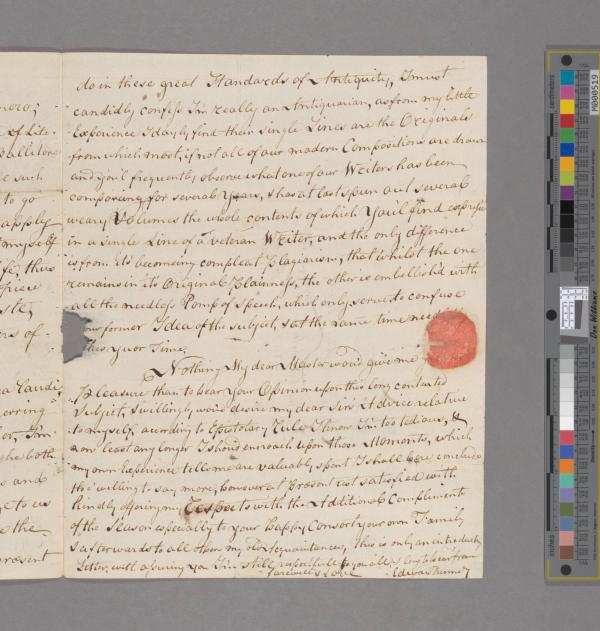 do in these great Standards of Antiquity, I must
candidly confess I'm really an Antiquarian, as from my little
Experience I dayly find their single Lines are the Originals
from which most, if not all of our modern Compositions are drawn
and you'll frequently observe what one of our Writers has been
composing for severals Years, & has at last spun out several
weary Volumes the whole contents of which You'll find
in a single Line of a veteran Writer, and the only difference
is from its becomeing compleat Plagiarism, that whilst the one
remains in its Original Plainness, the other is embellish'd with
all the needless Pomp of Speech, which only serve to confuse
our former Idea of the subject, & at the same time
Time.
Nothing My dear Master wou'd give me
Pleasure than to hear Your Opinion upon this long contested
Subject, & willingly wou'd desire my dear Sir's Advice relative
to myself, acording to Epistolary Rule I know I'm too tedious, &
now least any longer I shou'd encroach upon those Moments, which
my own Experience tell me are valuably spent I shall here conclude
tho' willing to say more, however at Present rest satisfied with
kindly offering my Respects with the Additional Compliments
of the Season especially to your happy Consort Your own Family
& afterwards to all them my old Acquaintances, this is only an introductory
Letter, with assuring you I'm still respectfull to you all, & long to hear from
farewell
noro;
such
to go
apply
myself
thus
ste,
rs of
Laudi,
erring
I'm
both
s and
to us
the
present
centimeters
inches
M000519
Don Williams